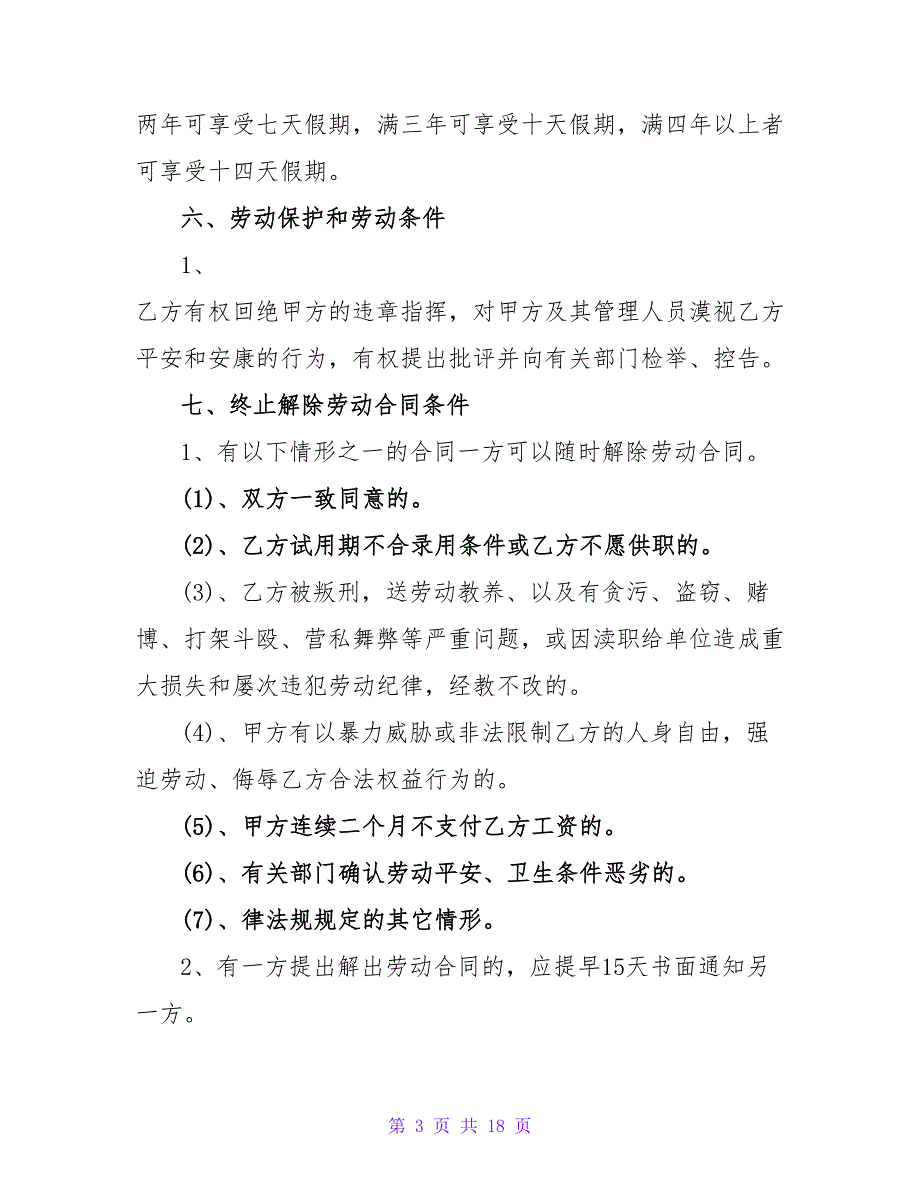 两年可享受七天假期，满三年可享受十天假期，满四年以上者
可享受十四天假期。
六、劳动保护和劳动条件
1、
乙方有权回绝甲方的违章指挥，对甲方及其管理人员漠视乙方
平安和安康的行为，有权提出批评并向有关部门检举、控告。
七、终止解除劳动合同条件
1、有以下情形之一的合同一方可以随时解除劳动合同。
(1)、双方一致同意的。
(2)、乙方试用期不合录用条件或乙方不愿供职的。
(3)、乙方被叛刑，送劳动教养、以及有贪污、盗窃、赌
博、打架斗殴、营私舞弊等严重问题，或因渎职给单位造成重
大损失和屡次违犯劳动纪律，经教不改的。
(4)、甲方有以暴力威胁或非法限制乙方的人身自由，强
迫劳动、侮辱乙方合法权益行为的。
(5)、甲方连续二个月不支付乙方工资的。
(6)、有关部门确认劳动平安、卫生条件恶劣的。
(7)、律法规规定的其它情形。
2、有一方提出解出劳动合同的，应提早15天书面通知另
一方。
第 3 页 共 18 页